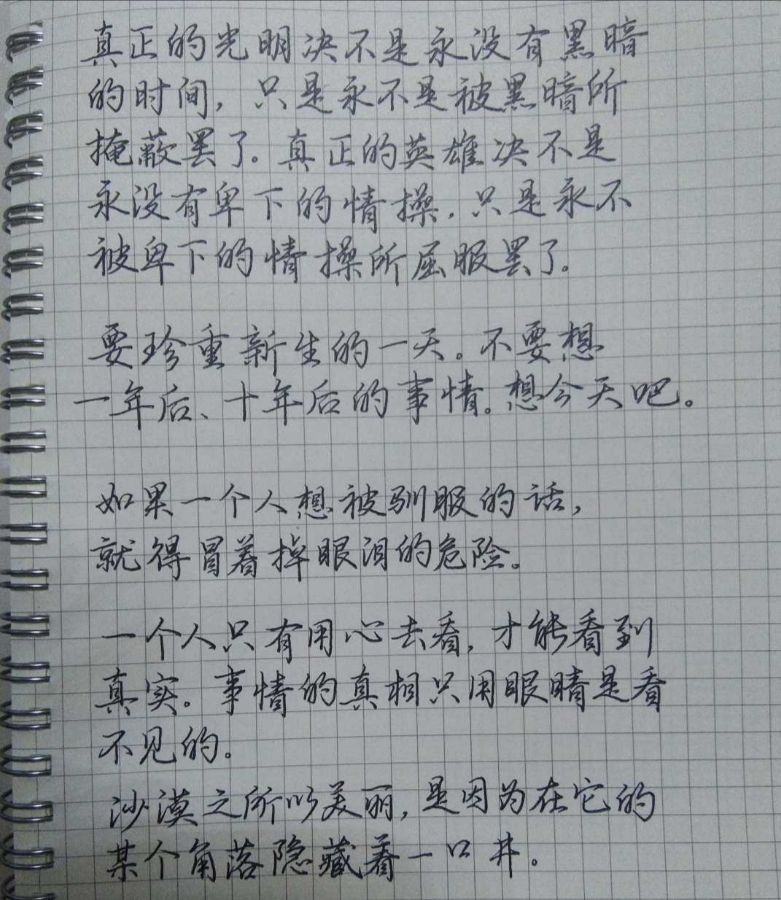 真正的光明决不是永没有黑暗
的时间，只是永不是被黑暗所
掩蔽罢了。真正的英雄决不是
永没有卑下的情操，只是永不
被卑下的情操所屈服罢了。
要珍重新生的一天。不要想
一年后、十年后的事情。想今天吧。
如果一个人想被驯服的话，
就得冒着掉眼泪的危险。
一个人只有用心去看，才能看到
真实。事情的真相只用眼睛是看
不见的。
沙漠之所以美丽，是因为在它的
某个角落隐藏着一口井。